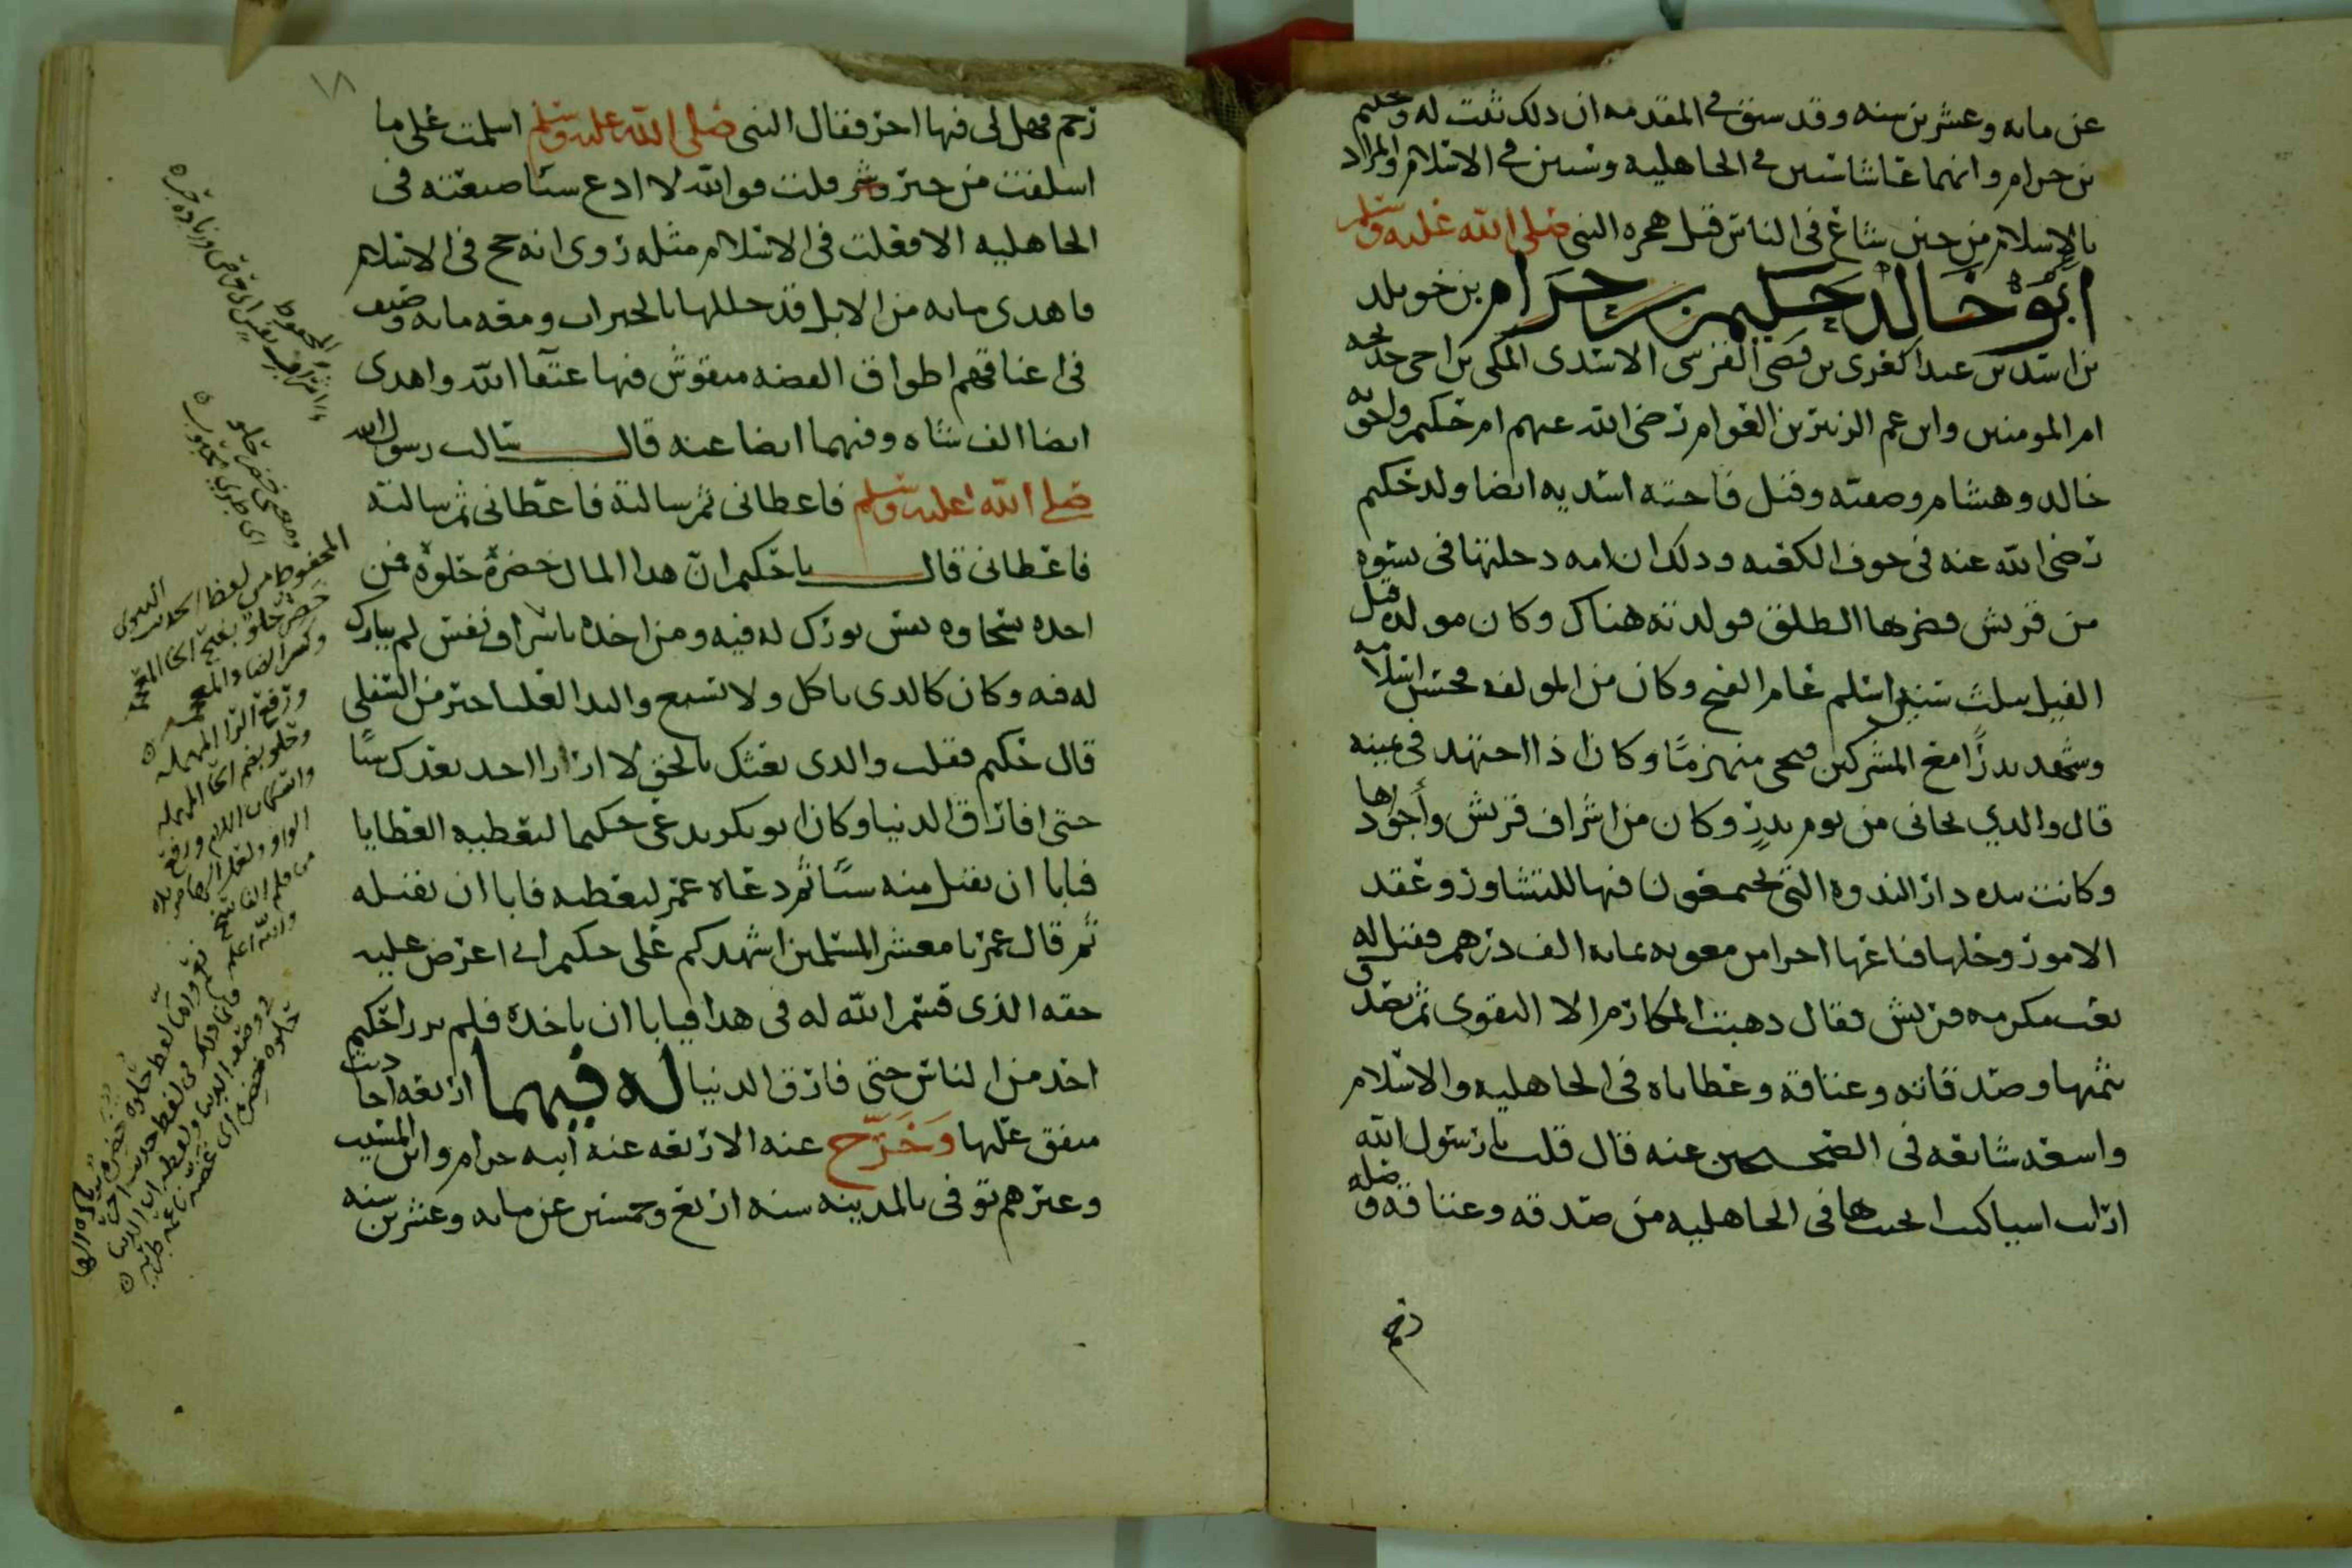 عن مايه وعشرين سنه وقد سبق في المقدمه ان ذلك ثبت له وحكيم
بن حرام وانهما عاشا ستين في الجاهليه وستين في الاسلام والمراد
بالاسلام من حين شاع في الناس قبل هجره النبي صلى الله عليه وسلم
ابو خالد حكيم بن حرام بن خويلد
بن اسد بن عبد العزى بن قصي القرشي الاسدي المكي بن اخي خديجه
ام المومنين وابن عم الزبير بن العوام رضي الله عنهم ام حكيم واخوته
خالد وهشام وصفيه وقيل فاخته اسديه ايضا ولد حكيم
رضي الله عنه في جوف الكعبه وذلك ان امه دخلتها في نسوه
من قريش فضربها الطلق فولدته هناك وكان مولده قبل
الفيل بثلث سنين اسلم عام الفتح وكان من المولفه فحسن اسلامه
وشهد بدرا مع المشركين فنجى منهزما وكان اذا اجتهد في يمينه
قال والذي نجاني من يوم بدر وكان من اشراف قريش وأجوادها
وكانت بيده دار الندوه التي يجتمعون فيها للتشاور وعقد
الامور وحلها فباعها اخرا من معويه بمايه الف درهم فقيل له
بعت مكرمه قريش فقال ذهبت المكارم الا التقوى ثم تصدق
بثمنها وصدقاته وعتاقه وعطاياه في الجاهليه والاسلام
واسعه شايعه في الصحيحين عنه قال قلت يا رسول الله
ارايت اشيا كنت اتحنث بها في الجاهليه من صدقه وعتاقه وصله
رحم
١٨
رحم فهل لي فيها اجر فقال النبي صلى الله عليه وسلم اسلمت على ما
اسلفت من خير وشر قلت فوالله لا ادع شيئا صنعته في
الجاهليه الا فعلت في الاسلام مثله روي انه حج في الاسلام
فاهدى مايه من الابل قد جللها بالحبرات ومعه مايه وصيف
في اعناقهم اطواق الفضه منقوش فيها عتقا الله واهدى
ايضا الف شاه وفيهما ايضا عنه قال سالت رسول الله
صلى الله عليه وسلم فاعطاني ثم سالته فاعطاني ثم سالته
فاعطاني قال يا حكيم ان هذا المال خضرة حلوة فمن
اخذه بسخاوه نفس بورك له فيه ومن اخذه باشراف نفس لم يبارك
له فيه وكان كالذي ياكل ولا يشبع واليد العليا خير من السفلى
قال حكيم فقلت والذي بعثك بالحق لا ارزا احد بعدك شيئا
حتى افارق الدنيا وكان ابو بكر يدعى حكيما ليعطيه العطايا
فيابا ان يقبل منه شيئا ثم دعاه عمر ليعطيه فابا ان يقبله
ثم قال عمر يا معشر المسلمين اشهدكم على حكيم اني اعرض عليه
حقه الذي قسم الله له في هذا فيابا ان ياخذه فلم يرزا حكيم
احد من الناس حتى فارق الدنيا له فيهما اربعه احاديث
متفق عليها وخرج عنه الاربعه عنه ابنه حرام وابن المسيب
وغيرهم توفي بالمدينه سنه اربع وخمسين عن مايه وعشرين سنه
المحفوظ من لفظ الحديث النبوي
خضر حلو بفتح الخا المعجمه
وكسر الضاد المعجمه
ورفع الرا المهمله
وحلو بضم الحا المهمله
واسكان اللام ورفع